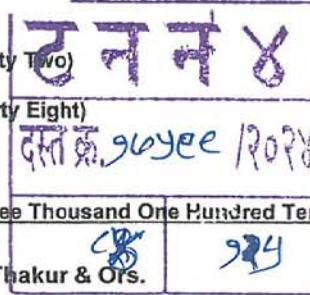 ty Two)
ट न न ४
ty Eight)
दस्त क्र. १७५९९ /२०२४
ee Thousand One Hundred Ten
Thakur & Ors.